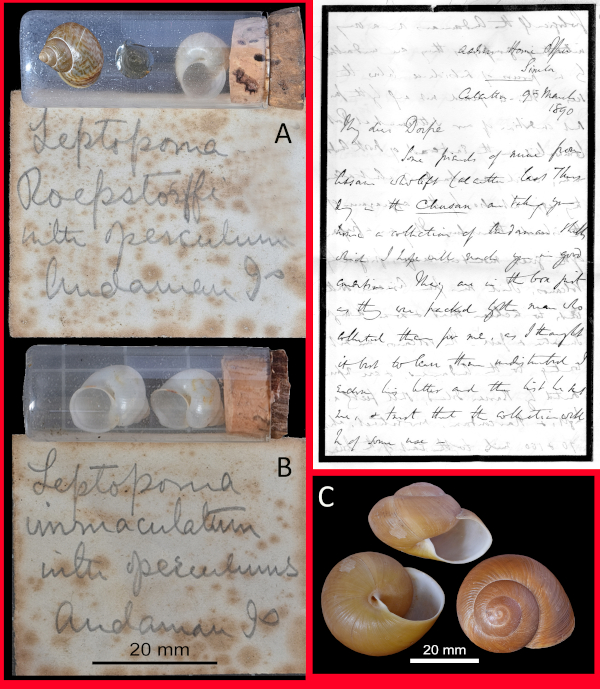 A
Leptopoma
Roepstorffi
with operculum
Andaman Is
B
Leptopoma
immaculatum
with operculums
Andaman Is
20 mm
Home Office
Simla
Calcutta. 9th March
1890
My dear Dorpé
Some friends of mine from
Assam who left Calcutta last Thurs
day in the Chusan are taking you
home a collection of Andaman Shells
which I hope will reach you in good
condition. They are in the box just
as they were packed by the man who
collected them for me, as I thought
it best to leave them undisturbed I
enclose his letter and the list he sent
me, & trust that the collection will
be of some use –
C
20 mm